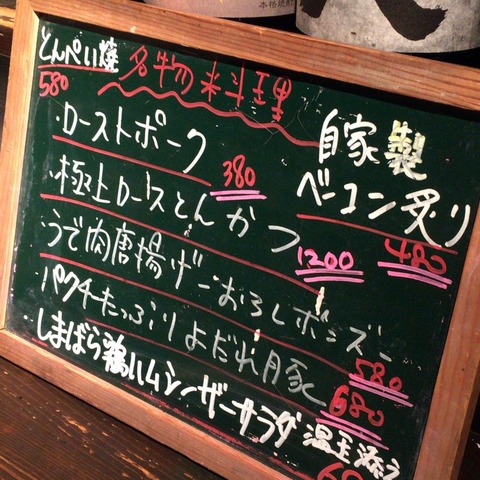 本格焼酎
とんぺい焼 580
名物料理
自家製ベーコン炙り 480
・ローストポーク 380
・極上ロースとんかつ 1200
・うで肉唐揚げ〜おろしポンズ〜 580
・パクチーたっぷりよだれ豚 680
・しまばら鶏ハムシーザーサラダ 温玉添え